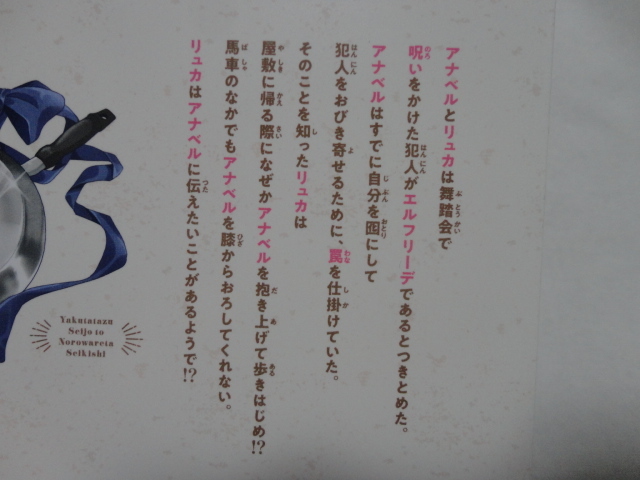 アナベルとリュカは舞踏会で
呪いをかけた犯人がエルフリーデであるとつきとめた。
アナベルはすでに自分を囮にして
犯人をおびき寄せるために、罠を仕掛けていた。
そのことを知ったリュカは
屋敷に帰る際になぜかアナベルを抱き上げて歩きはじめ!?
馬車のなかでもアナベルを膝からおろしてくれない。
リュカはアナベルに伝えたいことがあるようで!?
Yakutatazu
Seijo to
Norowareta
Seikishi